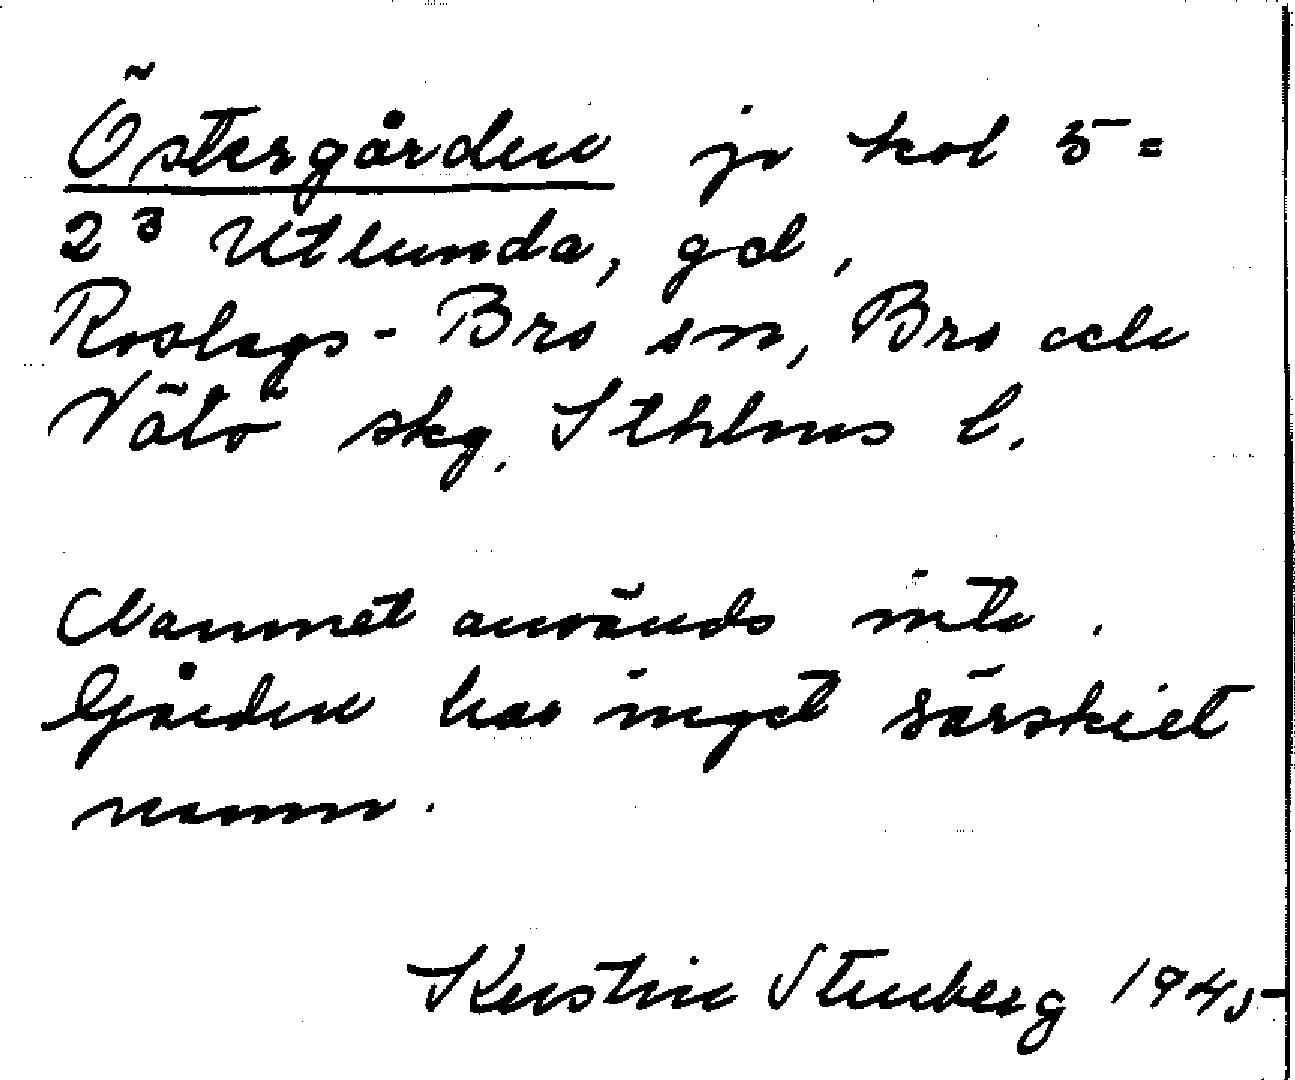 Östergården jr kol 5 =
2³ Utlunda, gd,
Roslags-Bro sn, Bro och
Vätö skg. Sthlms l.
Namnet används inte.
Gården har inget särskilt
namn.
Kerstin Stenberg 1945